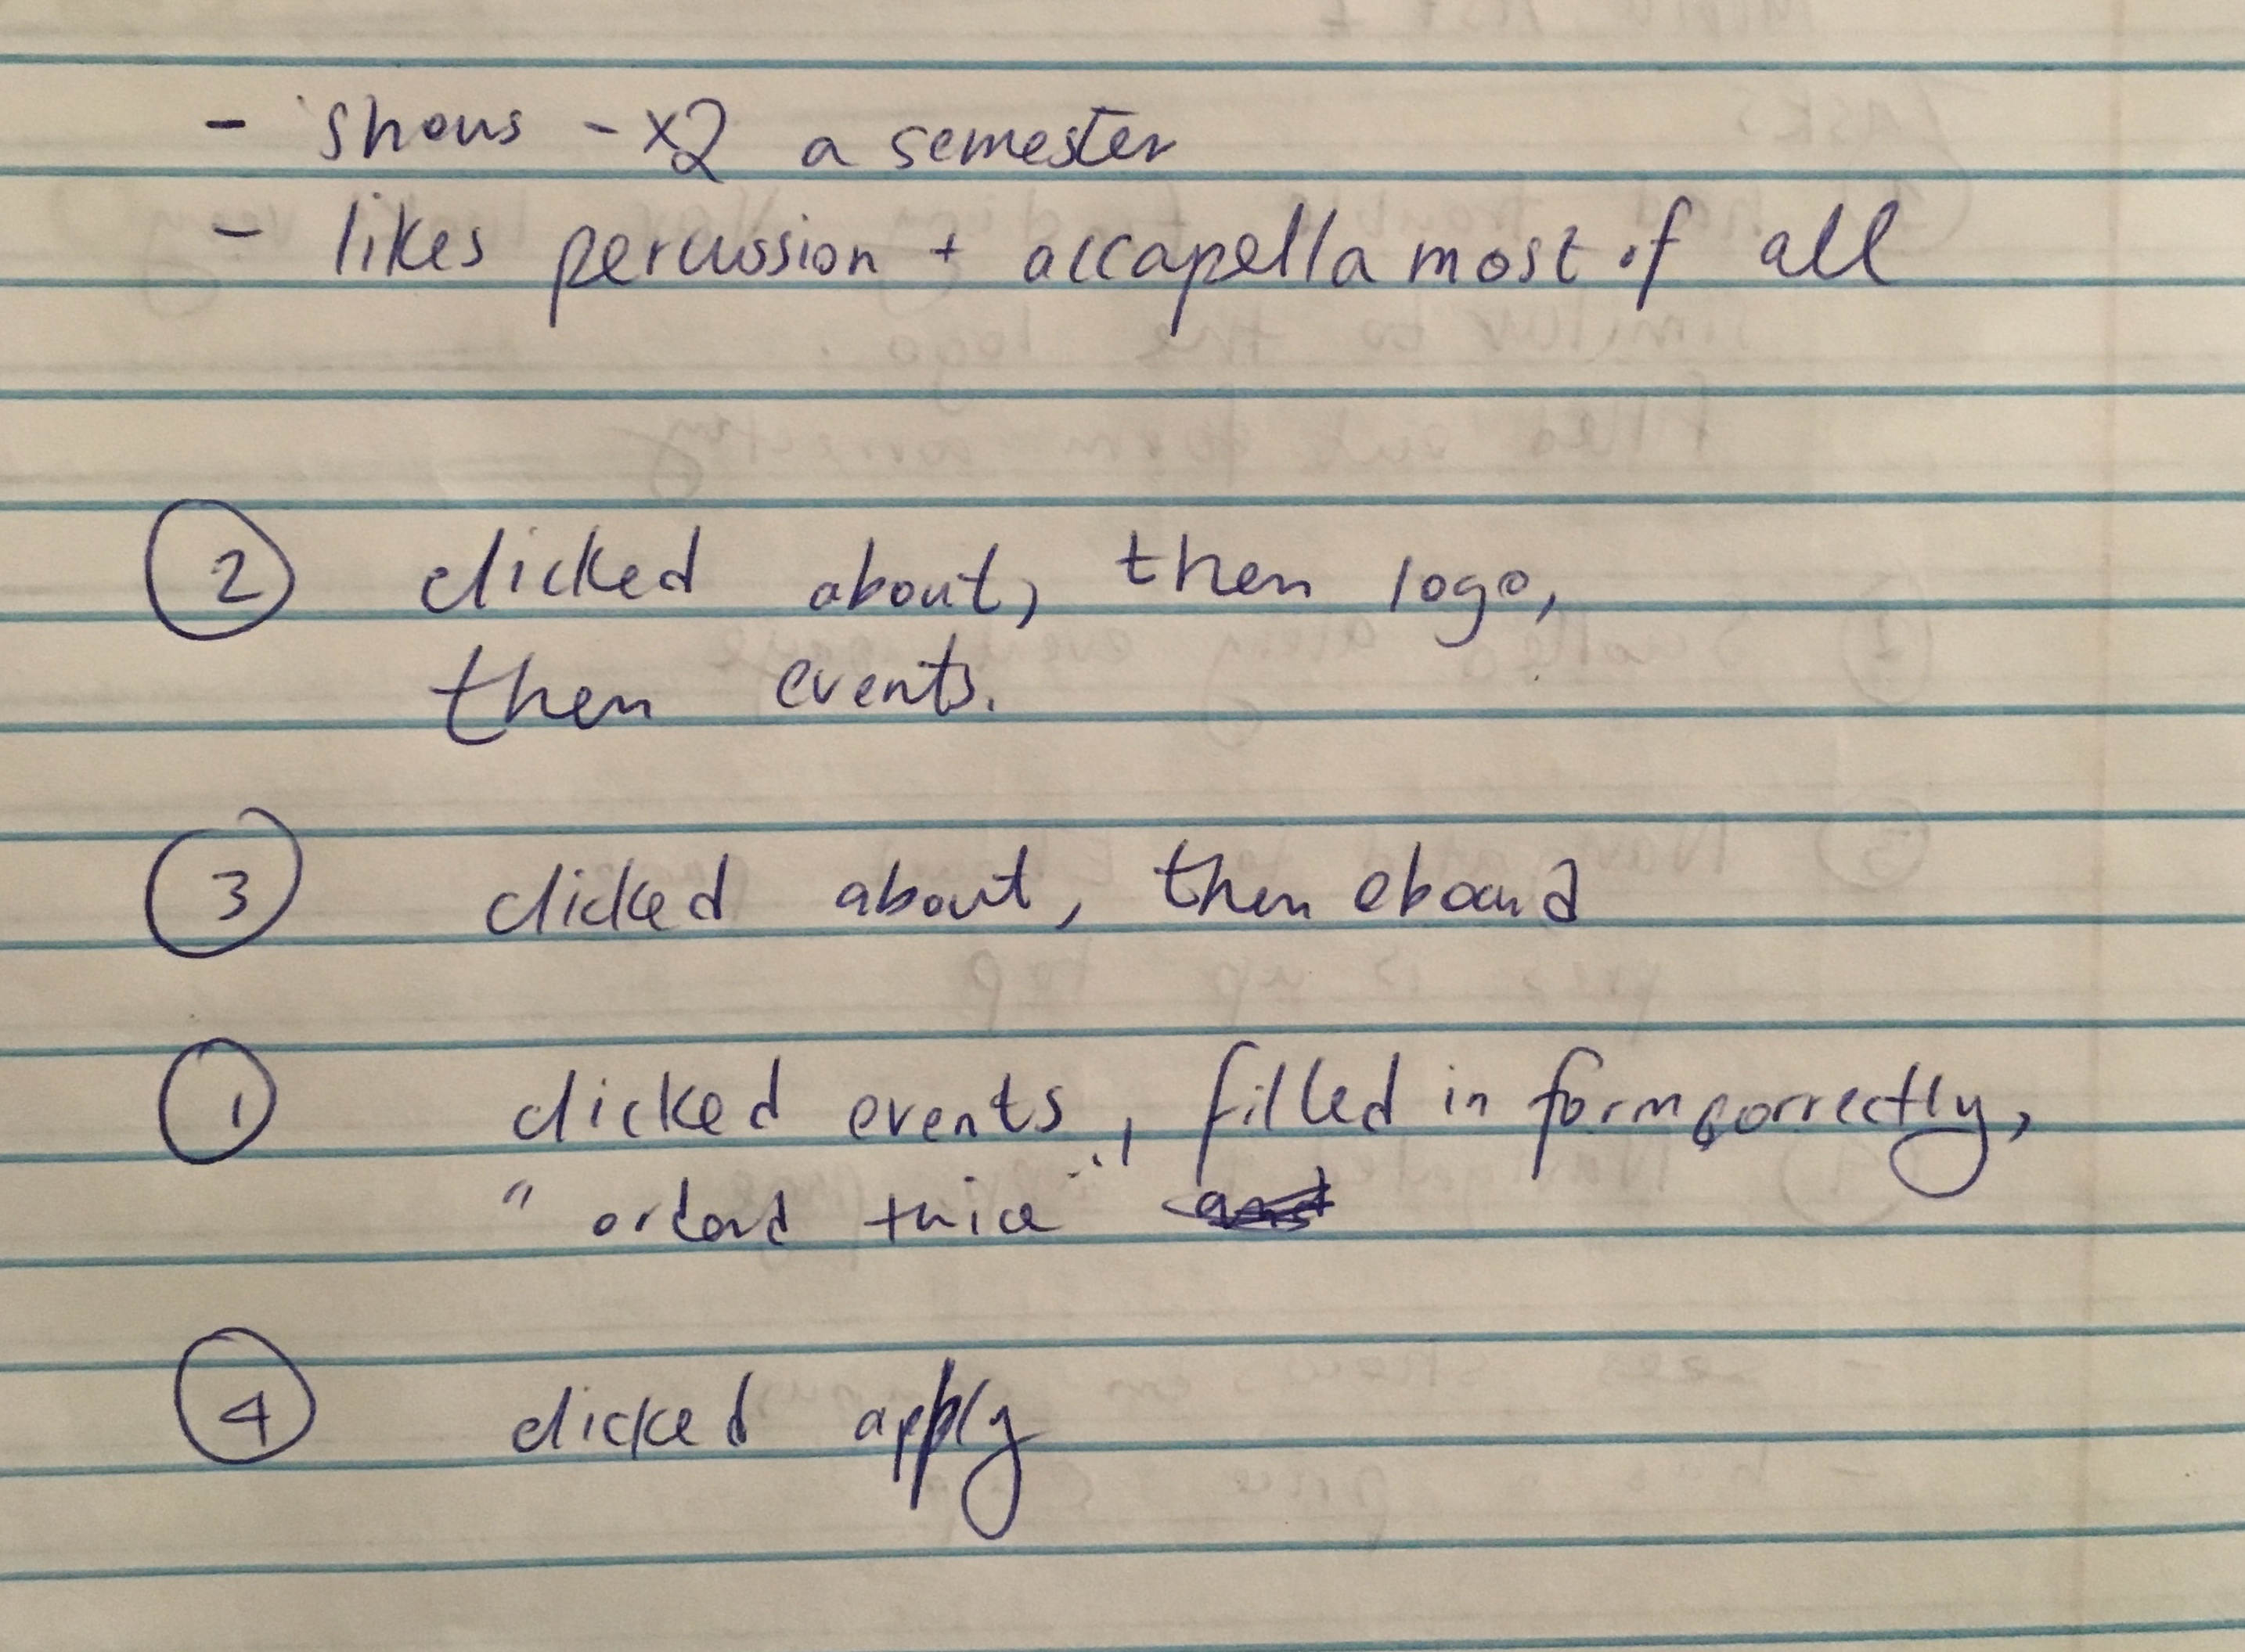 - shows - x2 a semester
- likes percussion + accapella most of all
2 clicked about, then logo,
then events.
3 clicked about, then eboard
1 clicked events, filled in form correctly,
" orderd twice "
4 clicked apply